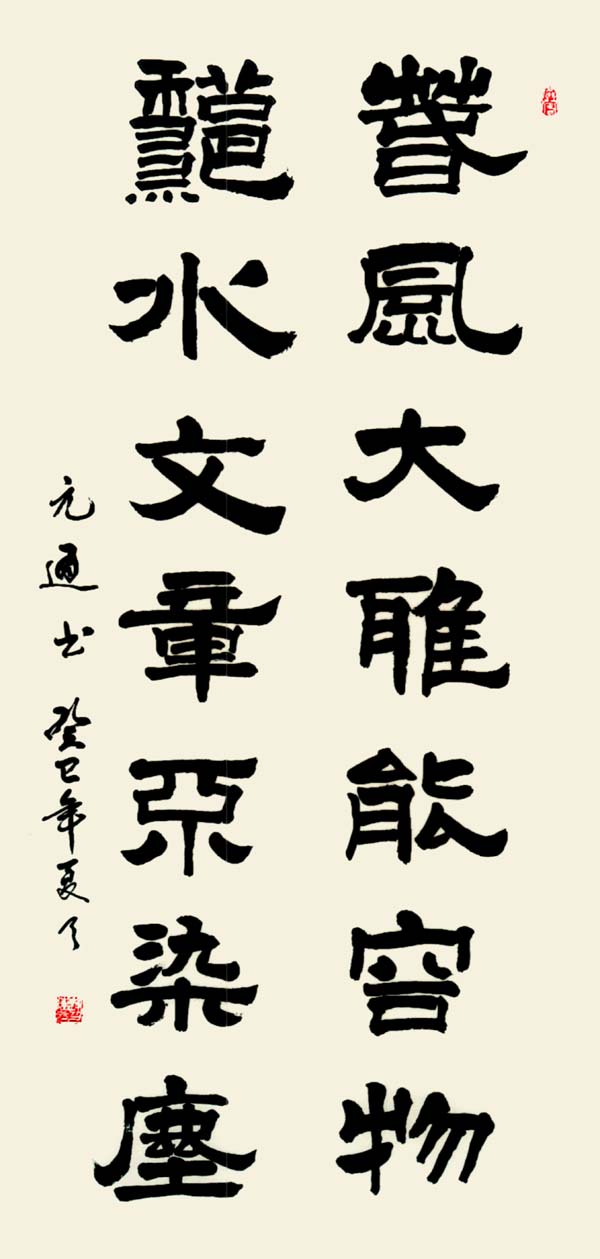 春風大雅能容物
秋水文章不染塵
元通书 癸巳年夏月